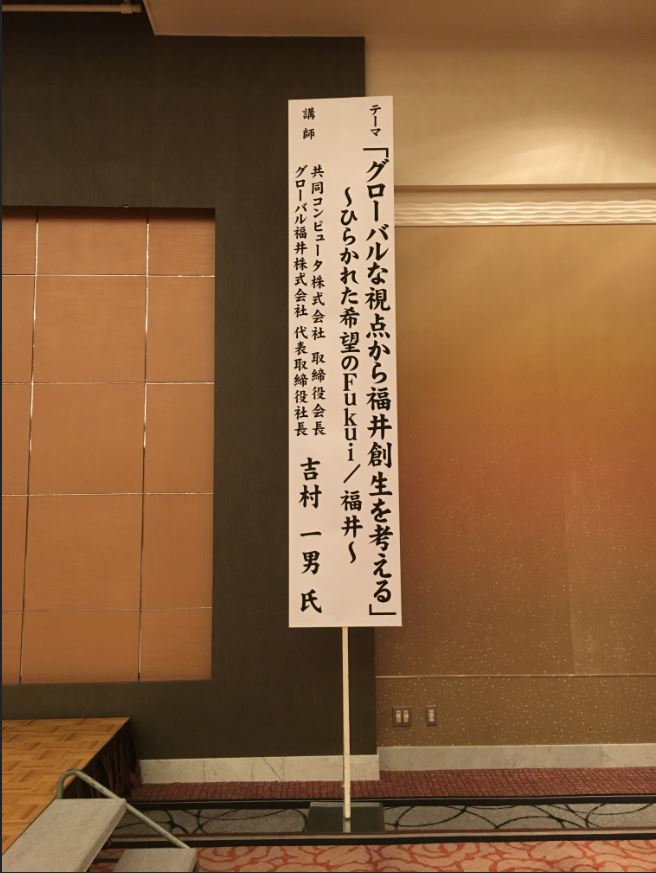 テーマ
「グローバルな視点から福井創生を考える」
～ひらかれた希望のFukui／福井～
講師
共同コンピュータ株式会社 取締役会長
グローバル福井株式会社 代表取締役社長
吉村 一男 氏